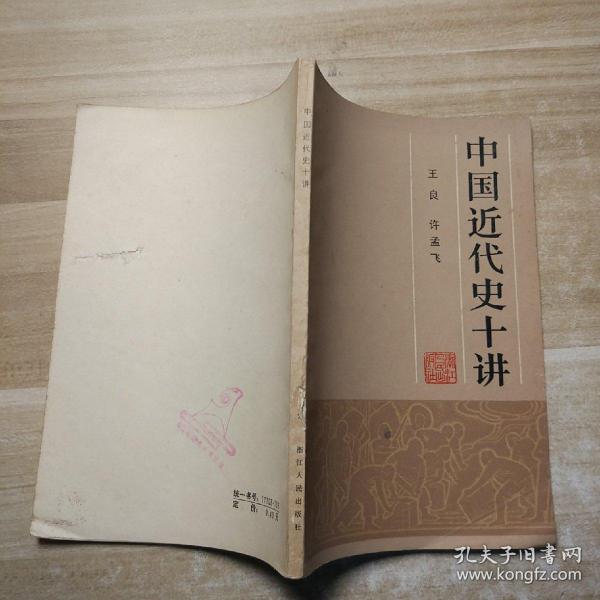 中国近代史十讲
王良 许孟飞
中国近代史十讲
浙江人民出版社
统一书号：
定 价：
孔夫子旧书网
www.kongfz.com